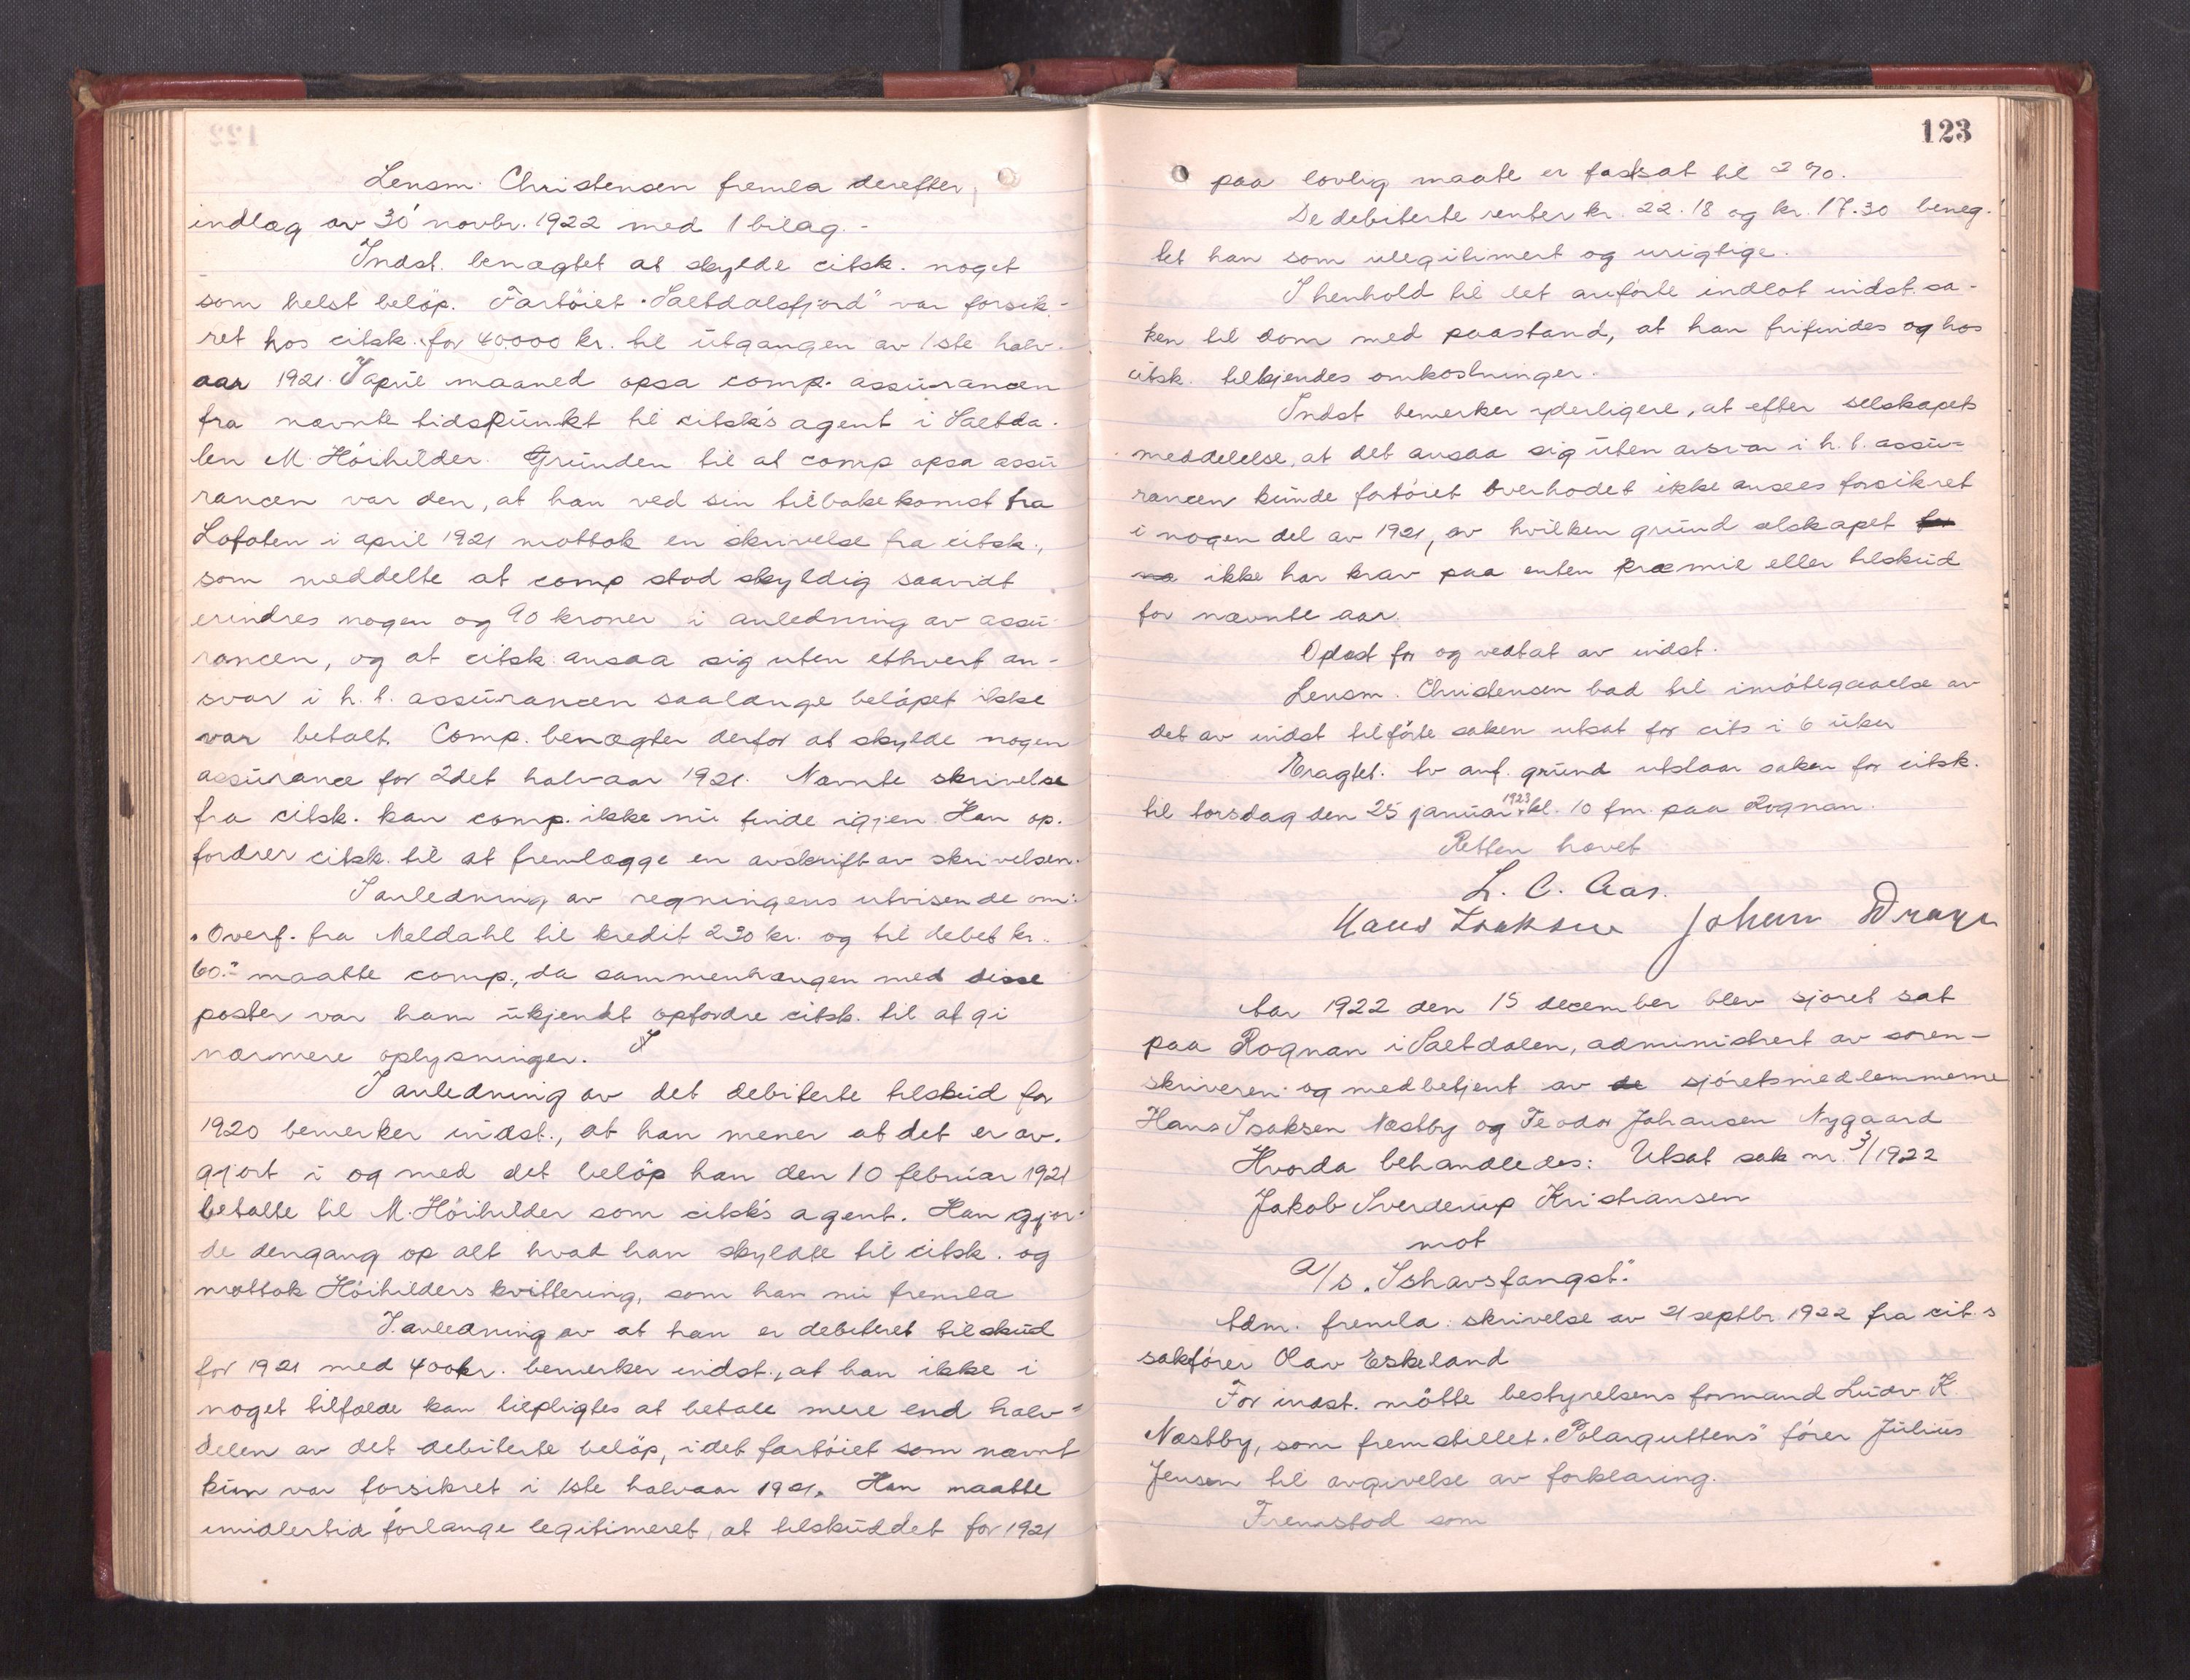 Lensm. Christensen fremla derefter
indlæg av 30' novbr. 1922 med 1 bilag.-
Indst. benægtet at skylde citsk. noget
som helst beløp. Fartöiet "Saltdalsfjord" var forsik-
ret hos citsk. for 40000 kr. til utgangen av 1ste halv-
aar 1921. I april maaned opsa comp. assurancen
fra nævnte tidspunkt til citsk's agent i Saltda-
len M. Höihilder. Grunden til at comp opsa assu
rancen var den, at han ved sin tilbakekomst fra
Lofoten i april 1921 mottok en skrivelse fra citsk.,
som meddelte at comp stod skyldig saavidt
erindres nogen og 90 kroner i anledning av assu-
rancen, og at citsk. ansaa sig uten ethvert an-
svar i h. t. assurancen saalænge beløpet ikke
var betalt. Comp. benægter derfor at skylde nogen
assurance for 2det halvaar 1921. Nævnte skrivelse
fra citsk. kan comp. ikke nu finde igjen. Han op-
fordrer citsk. til at fremlægge en avskrift av skrivelsen.
I anledning av regningens utvisende om:
"Overf. fra Meldahl til kredit 230 kr. og til debet kr.
60.-" maatte comp., da sammenhængen med disse
poster var ham ukjendt opfordre citsk. til at gi
nærmere oplysninger. I
I anledning av det debiterte tilskud for
1920 bemerker indst., at han mener at det er av-
gjort i og med det beløp han den 10 februar 1921
betalte til M. Höihilder som citsk's agent. Han gjor-
de dengang op alt hvad han skyldte til citsk. og
mottok Höihilders kvittering, som han nu fremla
I anledning av at han er debiteret tilskud
for 1921 med 400 kr. bemerker indst., at han ikke i
noget tilfælde kan tilpligtes at betale mere end halv-
delen av det debiterte beløp, idet fartöiet som nævnt
kun var forsikret i 1ste halvaar 1921. Han maatte
imidlertid forlange legitimeret, at tilskuddet for 1921
123
paa lovlig maate er fastsat til 2 %.
De debiterte renter kr. 22.18 og kr. 17.30 beneg-
tet han som ulegitimert og urigtige.
I henhold til det anförte indlot indst. sa-
ken til dom med paastand, at han frifindes og hos
citsk. tilkjendes omkostninger.
Indst bemerker yderligere, at efter selskapets
meddelelse, at det ansaa sig uten ansvar i h. t. assu-
rancen kunde fartöiet overhodet ikke ansees forsikret
i nogen del av 1921, av hvilken grund selskapet
ikke har krav paa enten præmie eller tilskud
for nævnte aar.
Oplæst for og vedtat av indst.
Lensm. Christensen bad til imötegaaelse av
det av indst tilförte saken utsat for cits i 6 uker
Eragtet. Av anf. grund utstaar saken for citsk.
til torsdag den 25 januar 1923 kl. 10 fm. paa Rognan.
Retten hævet
L. C. Aas.
Hans Isaksen Johan Drage
Aar 1922 den 15 december blev sjöret sat
paa Rognan i Saltdalen, administrert av soren-
skriveren og medbetjent av de sjöretsmedlemmerne
Hans Isaksen Næstby og Teodor Johansen Nygaard
Hvorda behandledes: Utsat sak nr. 3/1922
Jakob Sverderup Kristiansen
mot
A/s "Ishavsfangst".
Adm. fremla: skrivelse av 21 septbr. 1922 fra cit.s
sakförer Olav Eskeland
For indst. mötte bestyrelsens formand Ludv K
Næstby, som fremstillet "Polarguttens" förer Julius
Jensen til avgivelse av forklaring.
Fremstod som